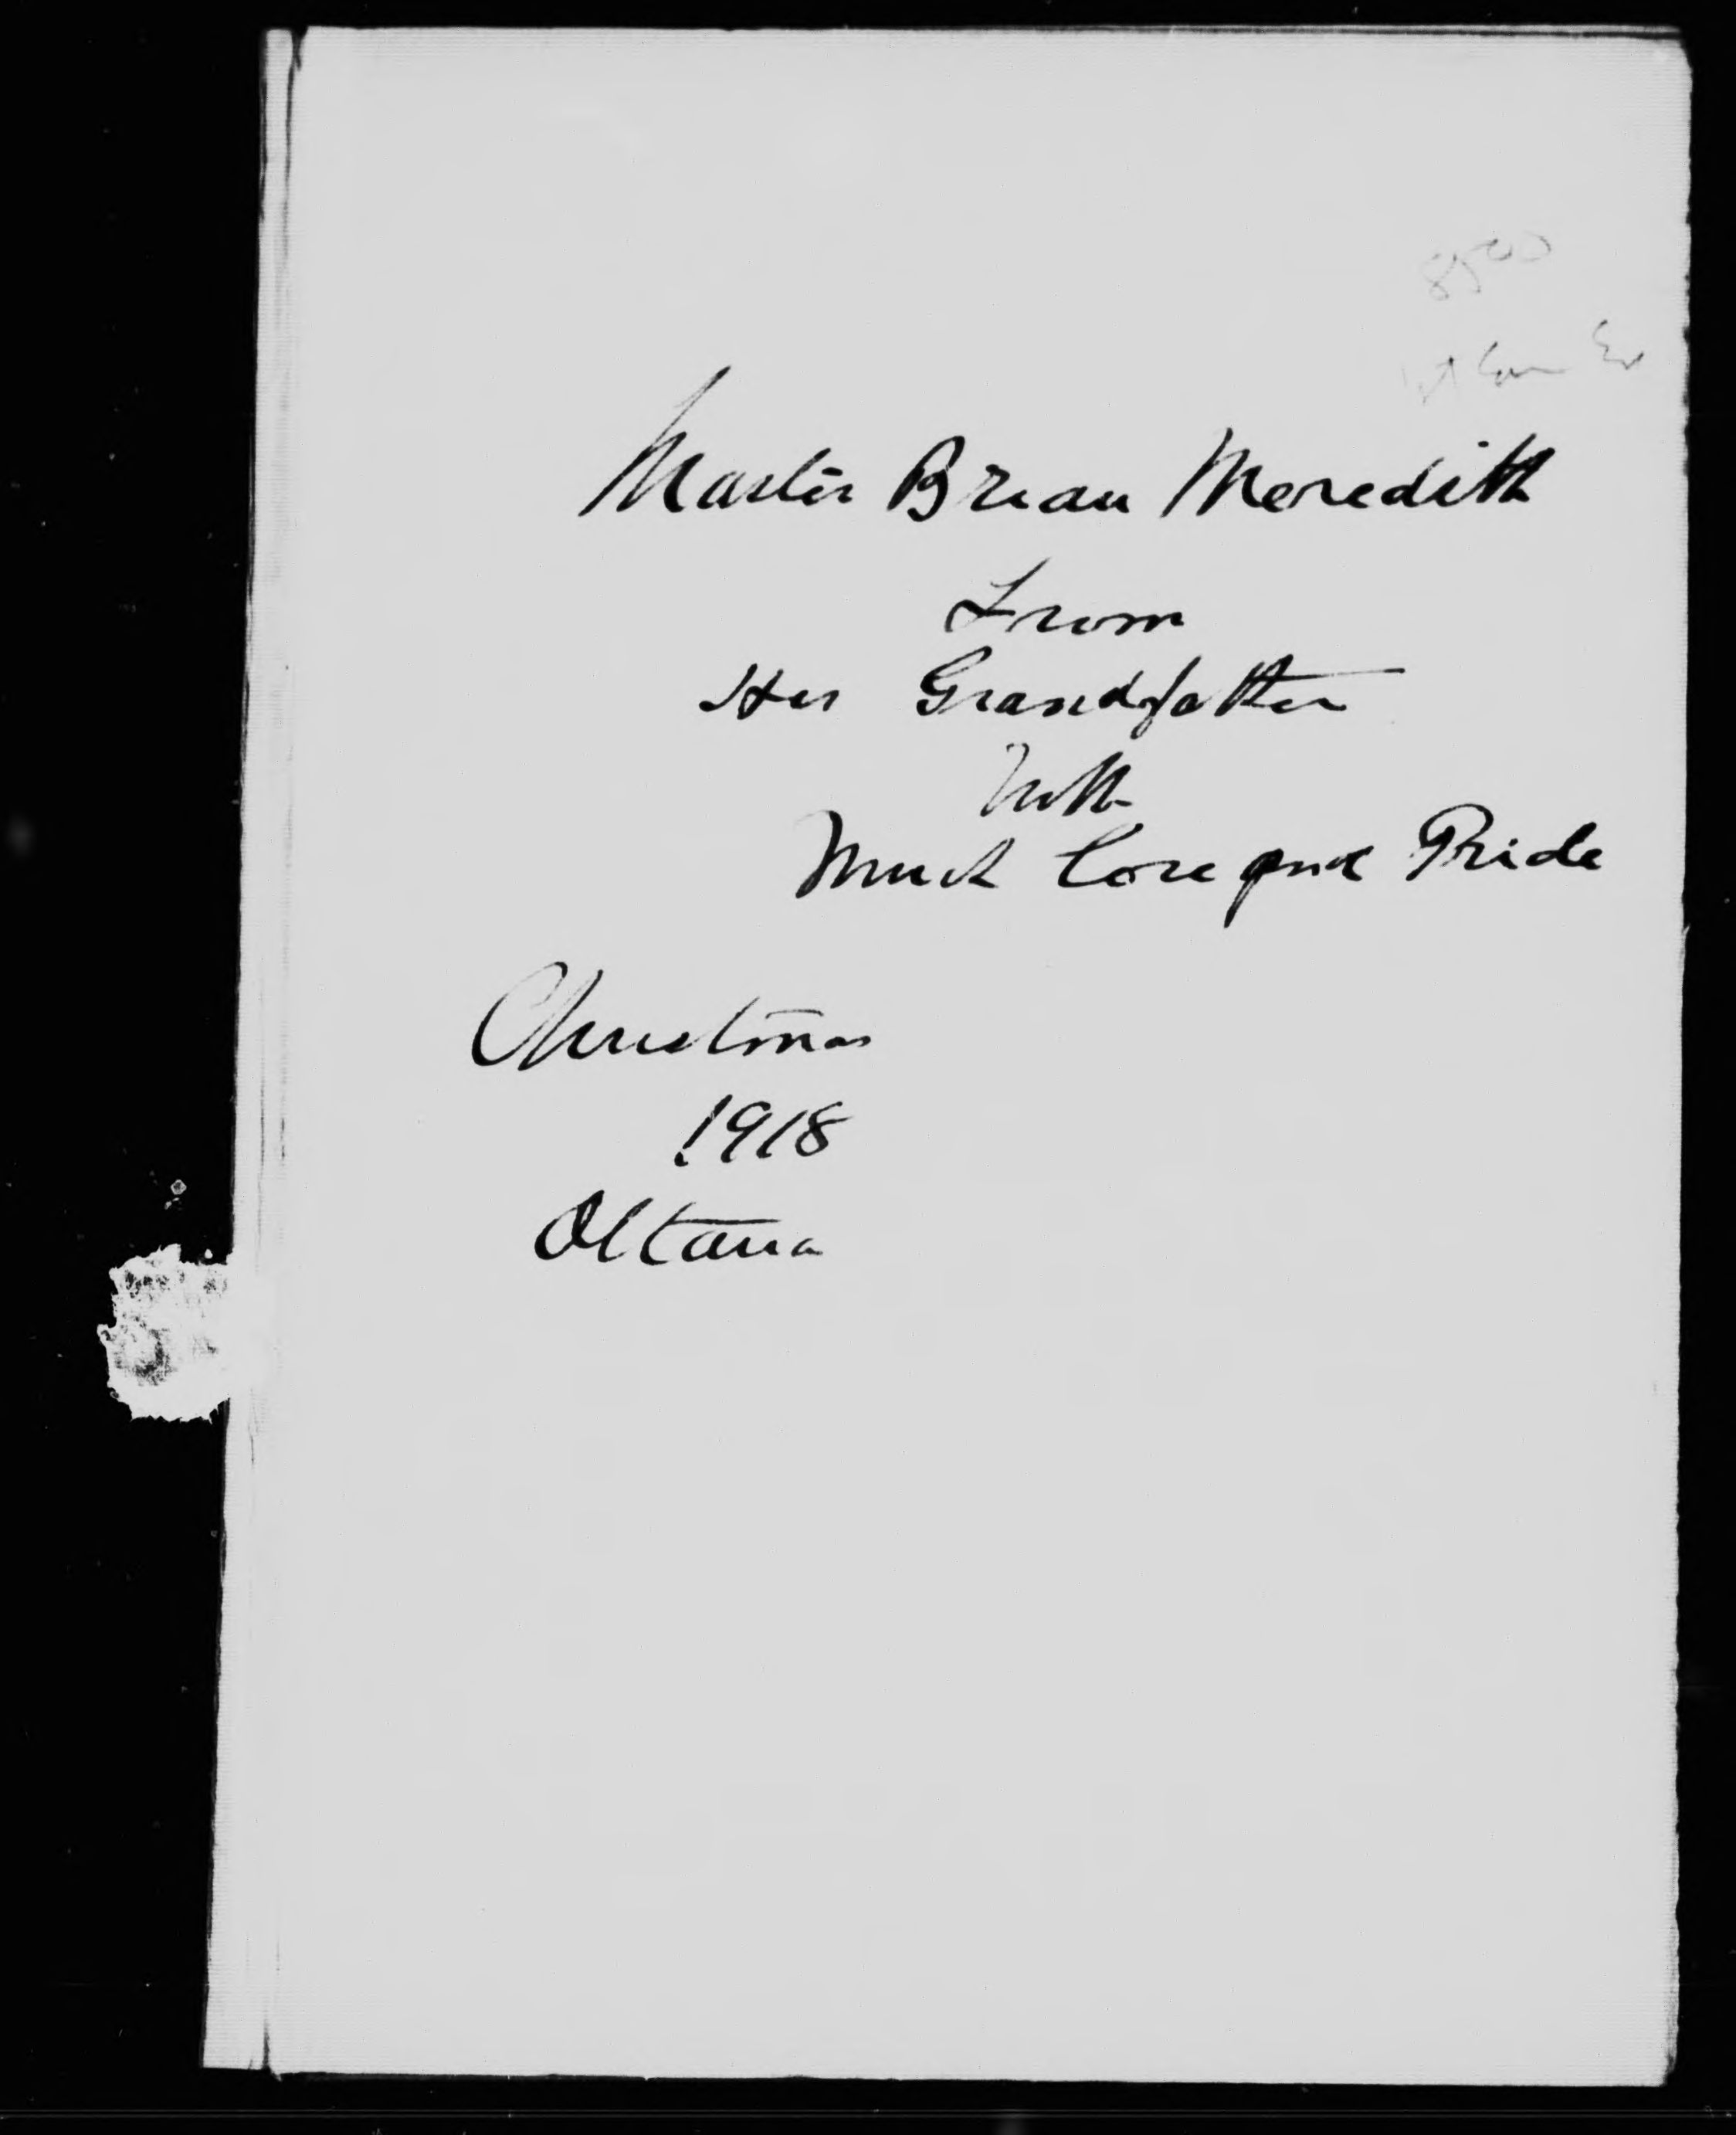 8500
1st Can Ed
Master Brian Meredith
From
His Grandfather
With
Much Love and Pride
Christmas
1918
Ottawa